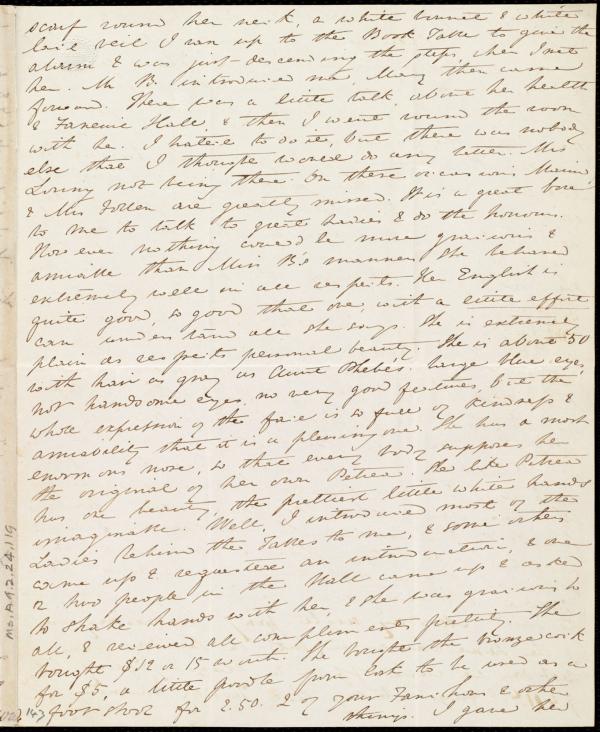 scarf round her neck, a white bonnet & white
lace veil I ran up to the Book Table to give the
alarm & was just descending the steps, when I met
her. Mr B. introduced me, Mary then came
forward. There was a little talk about her health
& Faneuil Hall, & then I went round the room
with her. I hated to do it, but there was nobody
else that I thought would do any better. Mrs
Loring not being there. On these occasions Maria
& Mrs Follen are greatly missed. It is a great bore
to me to talk to great ladies & do the honours.
However nothing could be more gracious &
amiable than Miss B's manners she behaved
extremely well in all respects. Her English is
quite good, so good that one, with a little effort
can understand all she says. She is extremely
plain as respects personal beauty. She is about 50
with hair as gray as Aunt Phebe's. large blue eyes,
not handsome eyes, no very good features, but the
whole expression of the face is so full of kindness &
amiability that it is a pleasing one. She has a most
enormous nose, so that every body supposes her
the original of her own Petrea. But like Petrea
has one beauty, the prettiest little white hands
imaginable. Well, I introduced most of the
Ladies behind the Tables to me, & some others
came up & requested an introduction, & one
or two people in the Hall came up & asked
to shake hands with her, & she was gracious to
all, & received all compliments prettily. She
bought $12 or 15 worth. She bought the bronze cock
for $5, a little poodle from Cork to be used as a
foot stool for 2.50. 2 of your Fanchons & other
things. I gave her
Ms.A.9.2.24.119